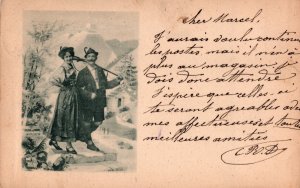 cher Marcel,
J'aurais voulu continuer
les postes mais il n'en a
plus au magasin je
dois donc attendre
J'espère que celles-ci
te seront agréables ain
mes affectueuses et tout
meilleures amitiés